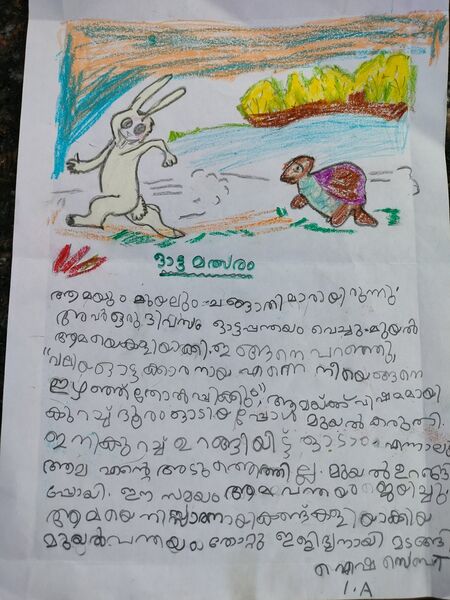 ഓട്ട മത്സരം
ആമയും മുയലും ചങ്ങാതിമാരായിരുന്നു
അവർ ഒരു ദിവസം ഓട്ടപ്പന്തയം വെച്ചു. മുയൽ
ആമയെ കളിയാക്കി. ഇങ്ങനെ പറഞ്ഞു,
"വലിയ ഓട്ടക്കാരനായ എന്നെ നീയെങ്ങനെ
ഇഴഞ്ഞ് തോൽപ്പിക്കും" ആമയ്ക്ക് വിഷമമായി
കുറച്ച് ദൂരം ഓടിയപ്പോൾ മുയൽ കരുതി.
ഇനി കുറച്ച് ഉറങ്ങിയിട്ട് ഓടാം എന്നാലും
ആമ എന്റെ അടുത്തെത്തില്ല. മുയൽ ഉറങ്ങി
പോയി. ഈ സമയം ആമ പന്തയം ജയിച്ചു.
ആമയെ നിസ്സാരനായി കണ്ട് കളിയാക്കിയ
മുയൽ പന്തയം തോറ്റു ഇളിഭ്യനായി മടങ്ങി
1.A